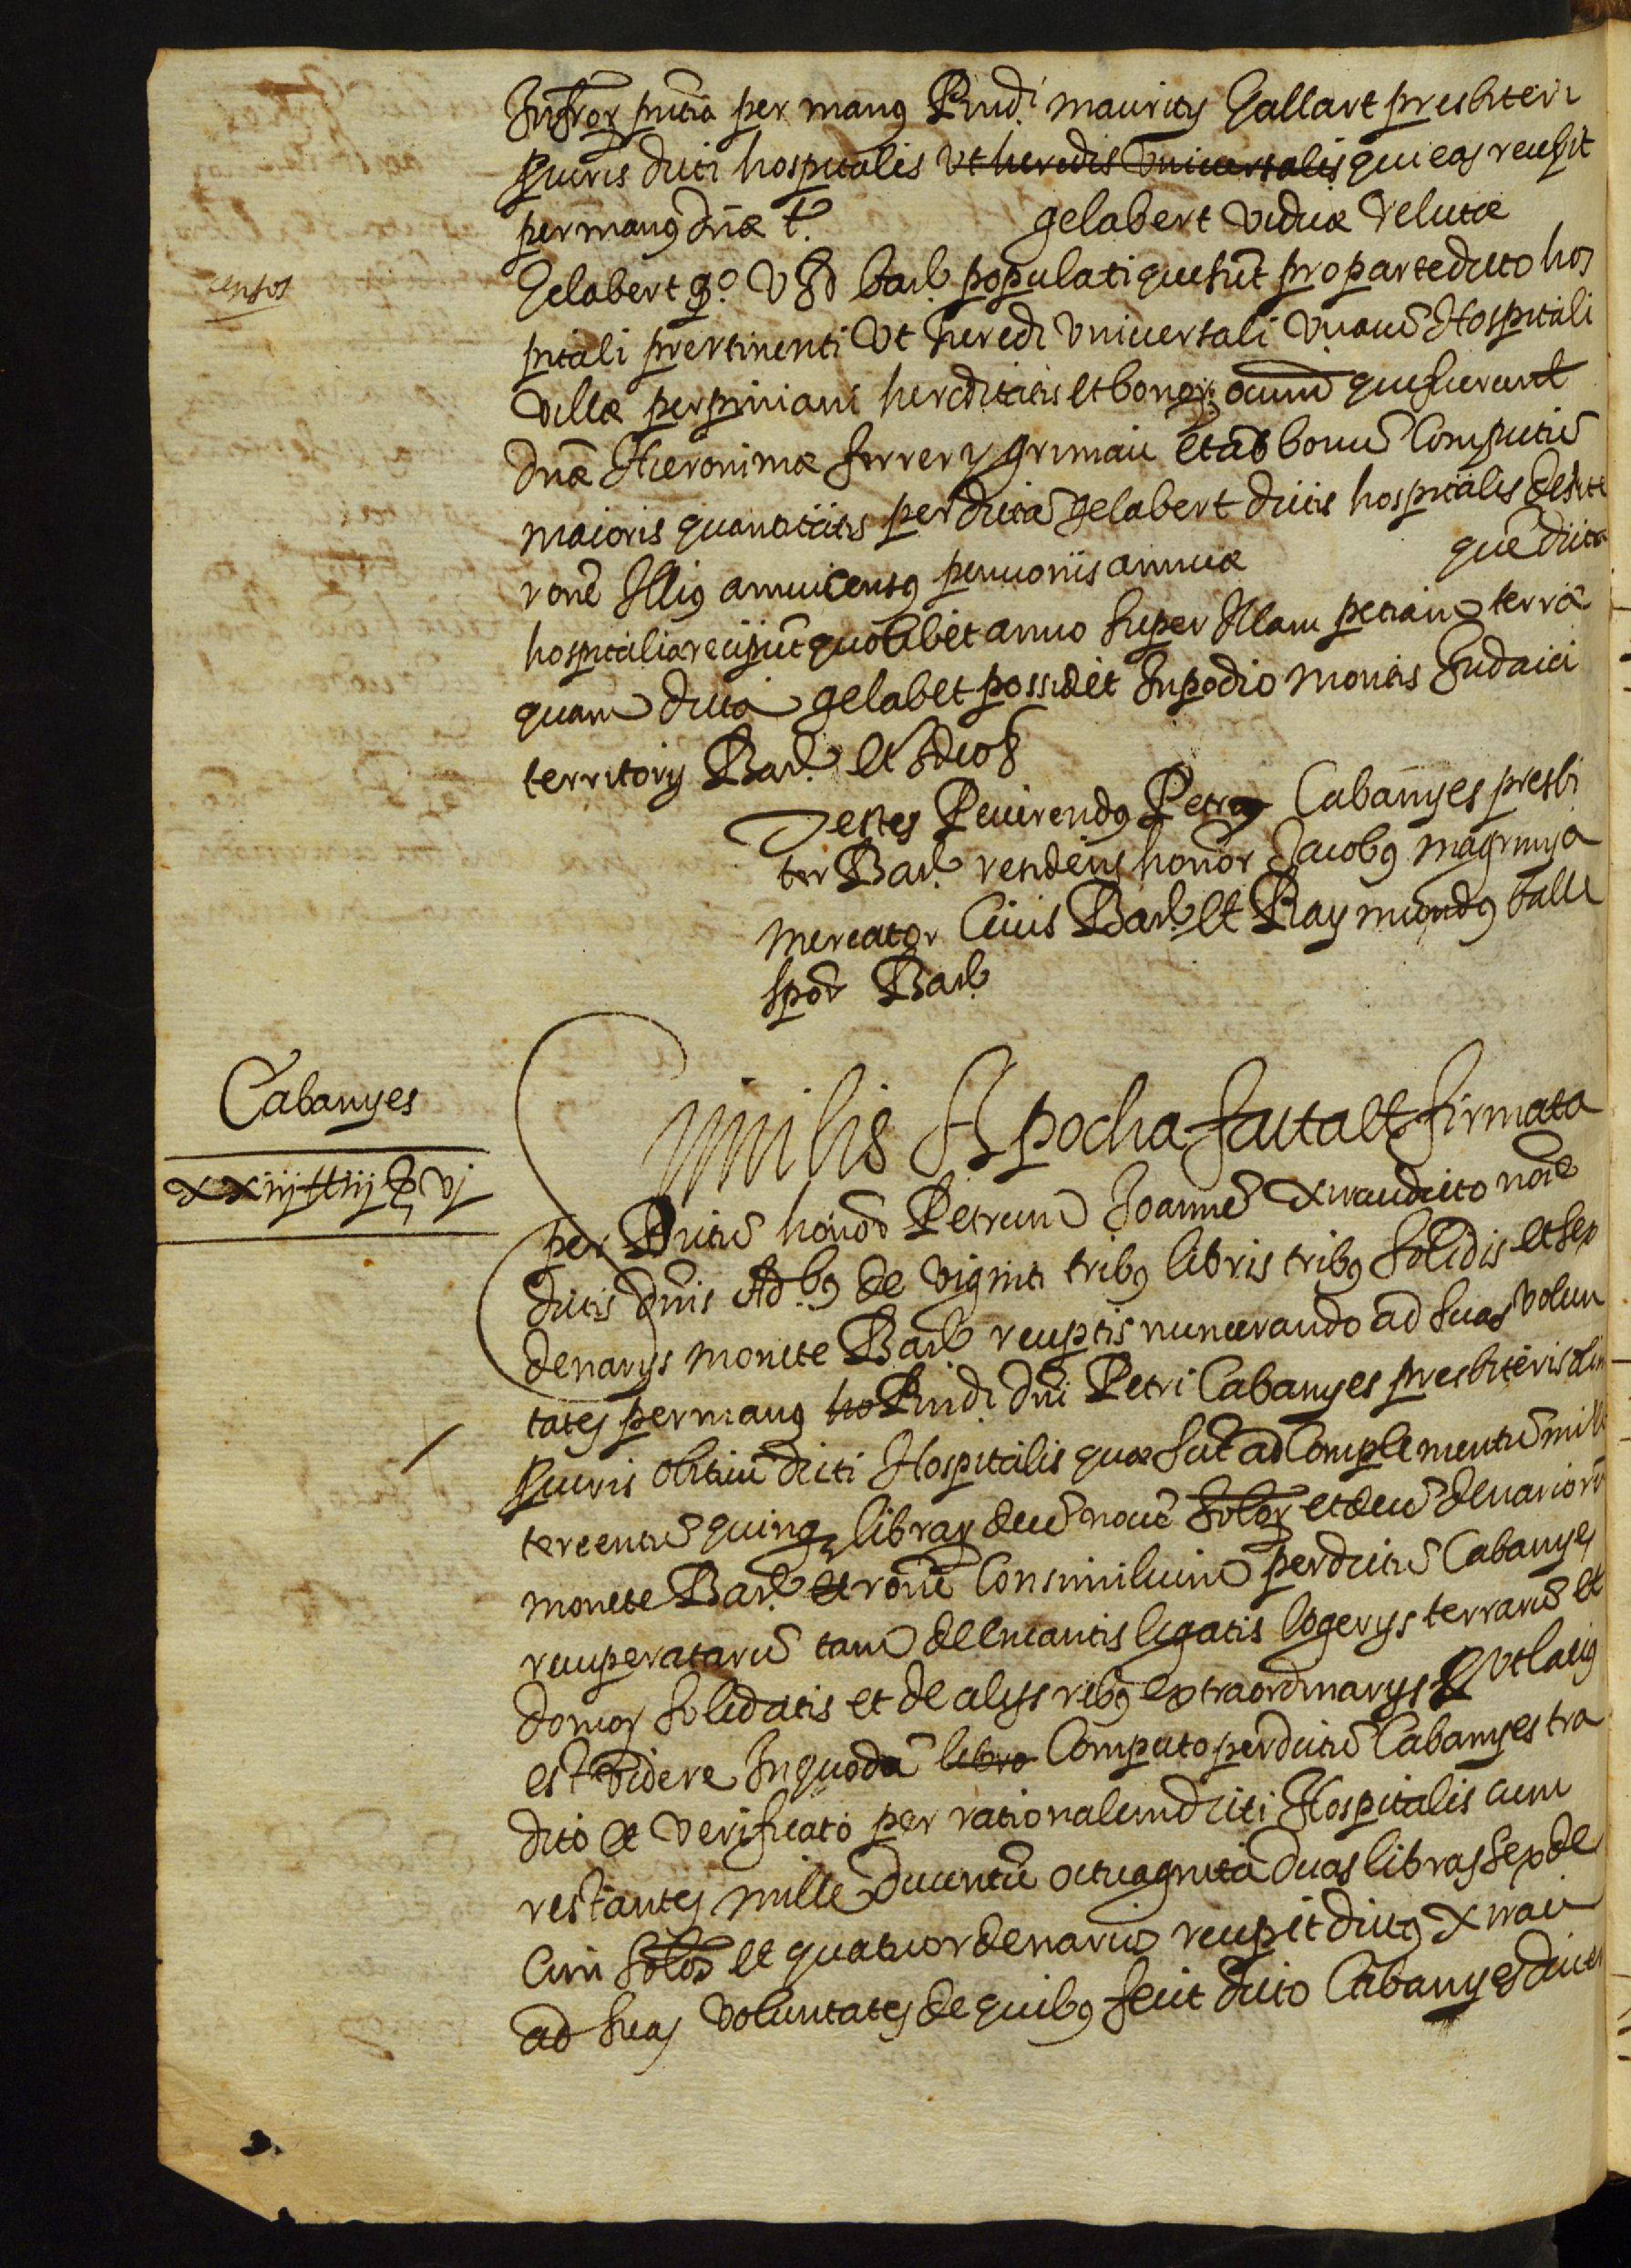 per manus Rndi mauritij Gallart presbiteri
dicti hospitalis vt heredis vniuersalis qui eas recepit
per manus dnæ gelabert viduæ relictæ
censos
Gelabert qo populati que sunt pro parte dicto hos
pitali pertinenti Vt heredi vniuersali vnacũ Hospitali
villæ perpiniani hereditatis et bonor que fuerunt
dnæ Hieronimæ ferrer y grimau et ad bonũ Computũ
maioris quantitatis per dictã gelabert dictis hospitalis
ronẽ Illius annui census pencionis annuæ quẽ dicta
hospitalia recipiũt quolibet anno super Illam petiam terræ
quam dicta gelabet possidet In podio montis Judaici
territorij Bar.
Testes Reuerendus Petrus Cabanyes presbi
ter Bar. residens honor Jacobus magrinya
mercator Ciuis Bar. et Raymundus
Bar
Cabanyes
xxiij ll iij ß vj
Similis Apocha facta et firmata
per Dictũ honor Petrum Joannẽ Xirau dicto noĩe
dictis dnis Adbus de viginti tribus libris tribus solidis et sex
denarijs monete Bar receptis numerando ad suas volun
tates per manus ho Rndi dni Petri Cabanyes presbiteri
dicti Hospitalis quæ sũt ad Complementũ mille
tercentũ quinq librar decẽ nouẽ solor et decẽ denariorũ
monete Bar. et ronẽ Consimiliũm per dictũ Cabanyes
recuperatarũ tam de encantis legatis logerijs terrarũ et
domor solidatis et de alijs rebus extraordinarijs vt latius
est videre In quodã libro Computo per dictũ Cabanyes tra
dito et verificato per rationalem dicti Hospitalis cum
restantes mille ducentũ octuaginta duas libras sexde
cim solos et quatuor denarios recepit dictus Xirau
ad suas voluntates de quibus fecit dicto Cabanyes